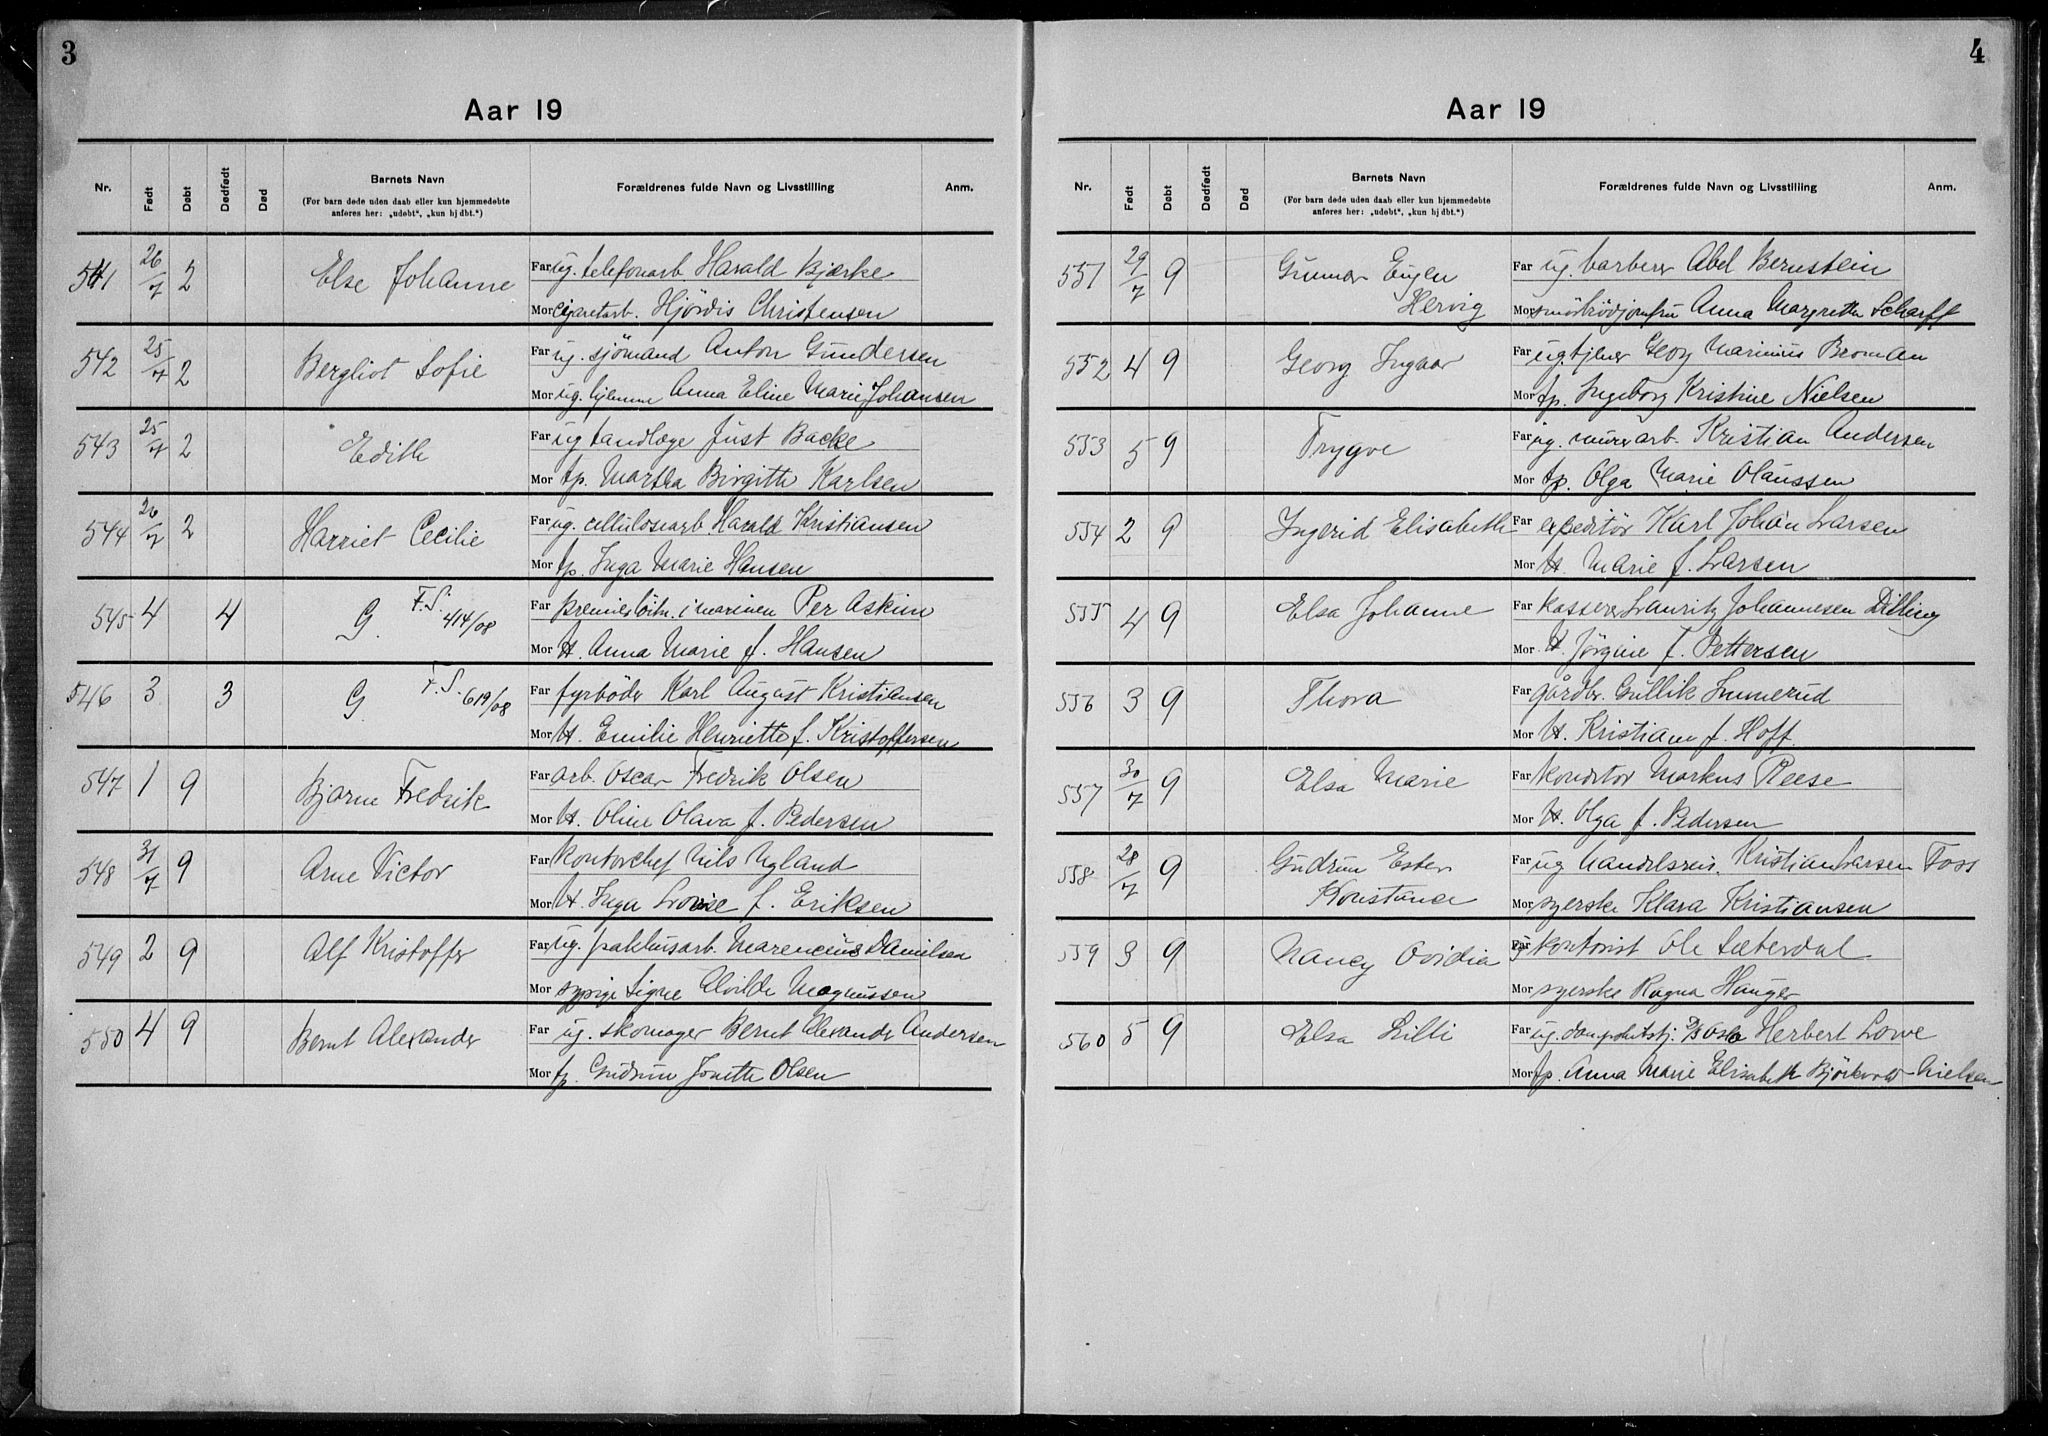 3
Aar 19
Nr. Født Døbt Dødfødt Død Barnets Navn Forældrenes fulde Navn og Livsstilling Anm.
(For barn døde uden daab eller kun hjemmedøbte
anføres her: „udøbt“, „kun hj dbt.“)
541 26/7 2 Else Johanne Far ug. telefonarb. Harald Bjærke
Mor cigaretarb. Hjördis Christensen
542 25/7 2 Bergliot Sofie Far ug. sjömand Anton Gundersen
Mor ug. hjemme Anna Eline Marie Johansen
543 25/7 2 Edith Far ug tandlæge Just Backe
Mor tp. Martha Birgitte Karlsen
544 26/7 2 Harriet Cecilie Far ug. cellulosearb. Harald Kristiansen
Mor tp. Inga Marie Hansen
545 4 4 G F.S. 414/08 Far premierlöitn. i marinen Per Askim
Mor H. Anna Marie f. Hansen
546 3 3 G F.S. 619/08 Far fyrböder Karl August Kristiansen
Mor H. Emilie Henriette f. Kristoffersen
547 1 9 Bjarne Fredrik Far arb. Oscar Fredrik Olsen
Mor H. Oline Olava f. Pedersen
548 31/7 9 Arne Victor Far kontorchef Nils Ugland
Mor H. Inga Lovise f. Eriksen
549 2 9 Alf Kristoffer Far ug. pakhusarb. Marencius Danielsen
Mor sypige Signe Alvilde Magnussen
550 4 9 Bernt Alexander Far ug. skomager Bernt Alexander Andersen
Mor tp. Gudrun Josette Olsen
4
Aar 19
Nr. Født Døbt Dødfødt Død Barnets Navn Forældrenes fulde Navn og Livsstilling Anm.
(For barn døde uden daab eller kun hjemmedøbte
anføres her: „udøbt“, „kun hj dbt.“)
551 29/7 9 Gunnar Eugen Far ug. barberer Abel Bernstein
Hervig Mor smörbrödjomfru Anna Margrethe Scharff
552 4 9 Georg Ingvar Far ug tjener Georg Marinius Broman
Mor tp. Ingeborg Kristine Nielsen
553 5 9 Trygve Far ug. murerarb. Kristian Andersen
Mor tp. Olga Marie Olaussen
554 2 9 Ingerid Elisabeth Far expeditör Karl Johan Larsen
Mor H. Marie f. Larsen
555 4 9 Elsa Johanne Far kasserer Lauritz Johannesen Dilling
Mor H. Jørgine f. Pettersen
556 3 9 Thora Far gårdbr. Gullik Immerud
Mor H. Kristiane f. Hoff
557 30/7 9 Elsa Marie Far konditor Markus Reese
Mor H. Olga f. Pedersen
558 28/7 9 Gudrun Ester Far ug handelsreis. Kristian Larsen Foss
Konstance Mor syerske Klara Kristiansen
559 3 9 Nancy Ovidia ug kontorist Ole Sæterdal
Mor syerske Ragna Hauger
560 5 9 Elsa Lilli Far ug. D/S Oslo Herbert Lowe
Mor tp. Anna Marie Elisabeth Björkvold-Nielsen